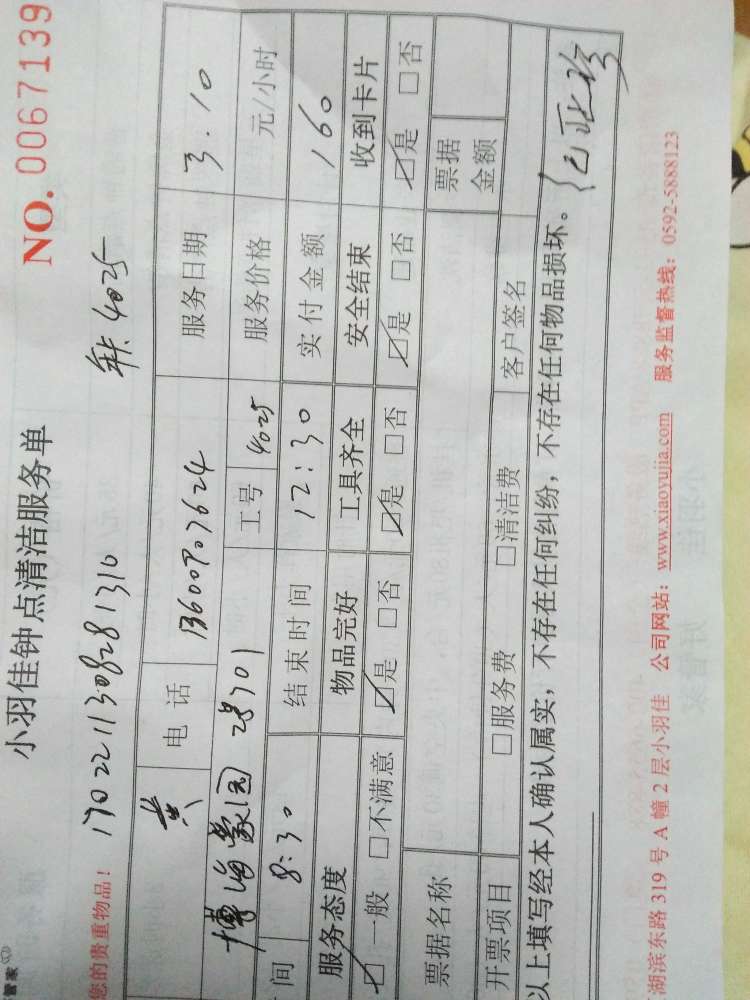 管家
小羽佳钟点清洁服务单 NO. 0067139
您的贵重物品! 1702211308281310 4025
黄 电话 13600907624 服务日期 3.10
博海豪园 28701 工号 4025 服务价格 元/小时
间 8:30 结束时间 12:30 实付金额 160
服务态度 物品完好 工具齐全 安全结束 收到卡片
☑一般 □不满意 ☑是 □否 ☑是 □否 ☑是 □否 ☑是 □否
票据名称 票据金额
开票项目 □服务费 □清洁费 客户签名
以上填写经本人确认属实,不存在任何纠纷,不存在任何物品损坏。
湖滨东路 319 号 A 幢 2 层小羽佳 公司网站: www.xiaoyujia.com 服务监督热线: 0592-5888123